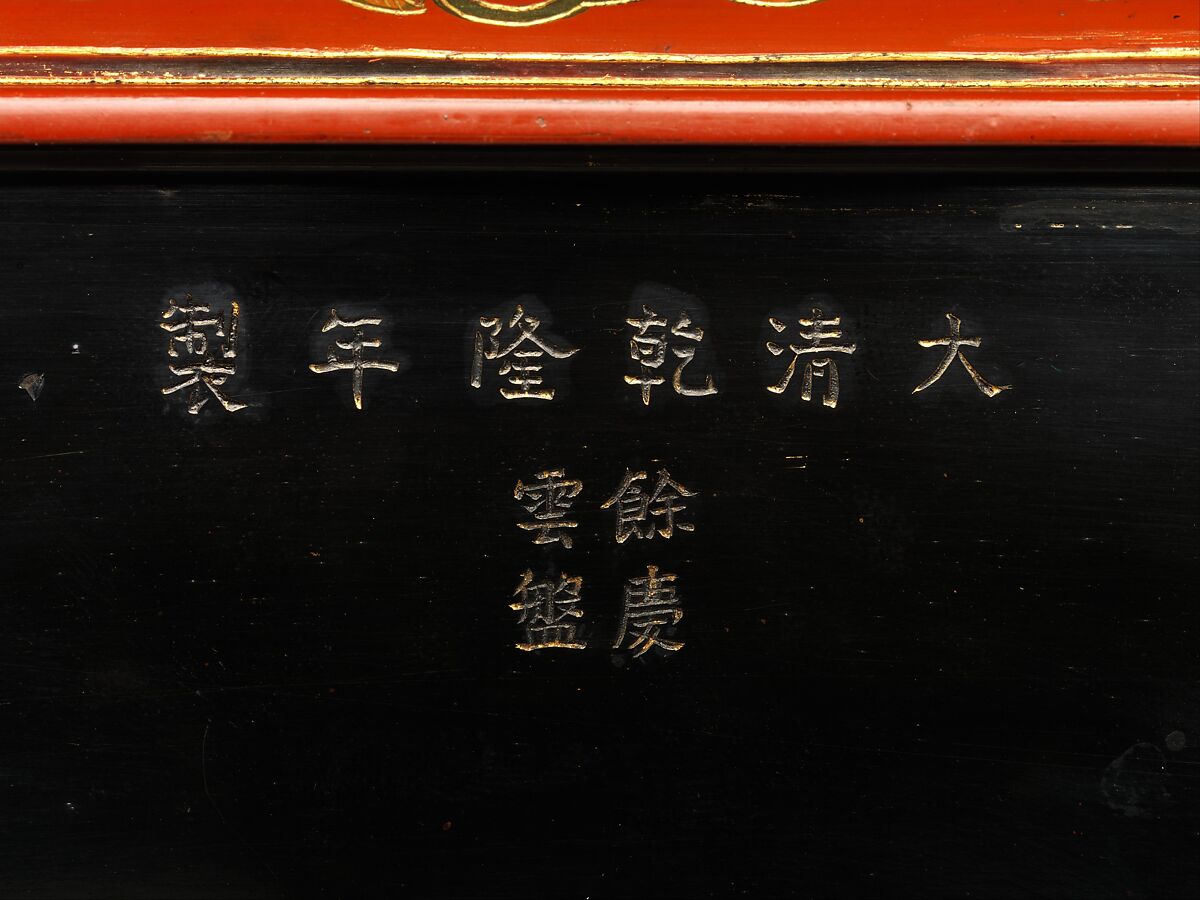 大清乾隆年製
餘慶
雲盤